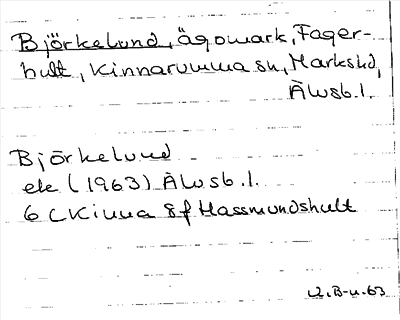 Björkelund, ägomark, Fager-
hult, Kinnarumma sn, Markshd,
Älvsb.l.
Björkelund
ek (1963) Älvsb.l.
6 C Kinna 8f Hassmundshult
U.B-n.63